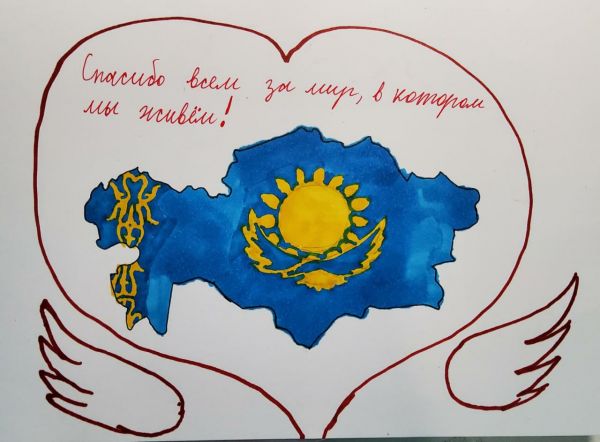 Спасибо всем за мир, в котором
мы живём!